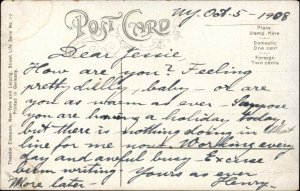 POST CARD
NY, Oct-5-1908
Place
Stamp Here
Domestic
One cent
Foreign
Two cents
Dear Jessie
How are you? Feeling
pretty dilly, baby - or are
you as warm as ever Suppose
you are having a holiday today,
but there is nothing doing in that
line for me now. Working every
day and awful busy - Excuse
bum writing Yours as ever
More later - Henry
Theodor Eismann, New-York and Leipzig, Street Life Serie No.
Printed in Germany.